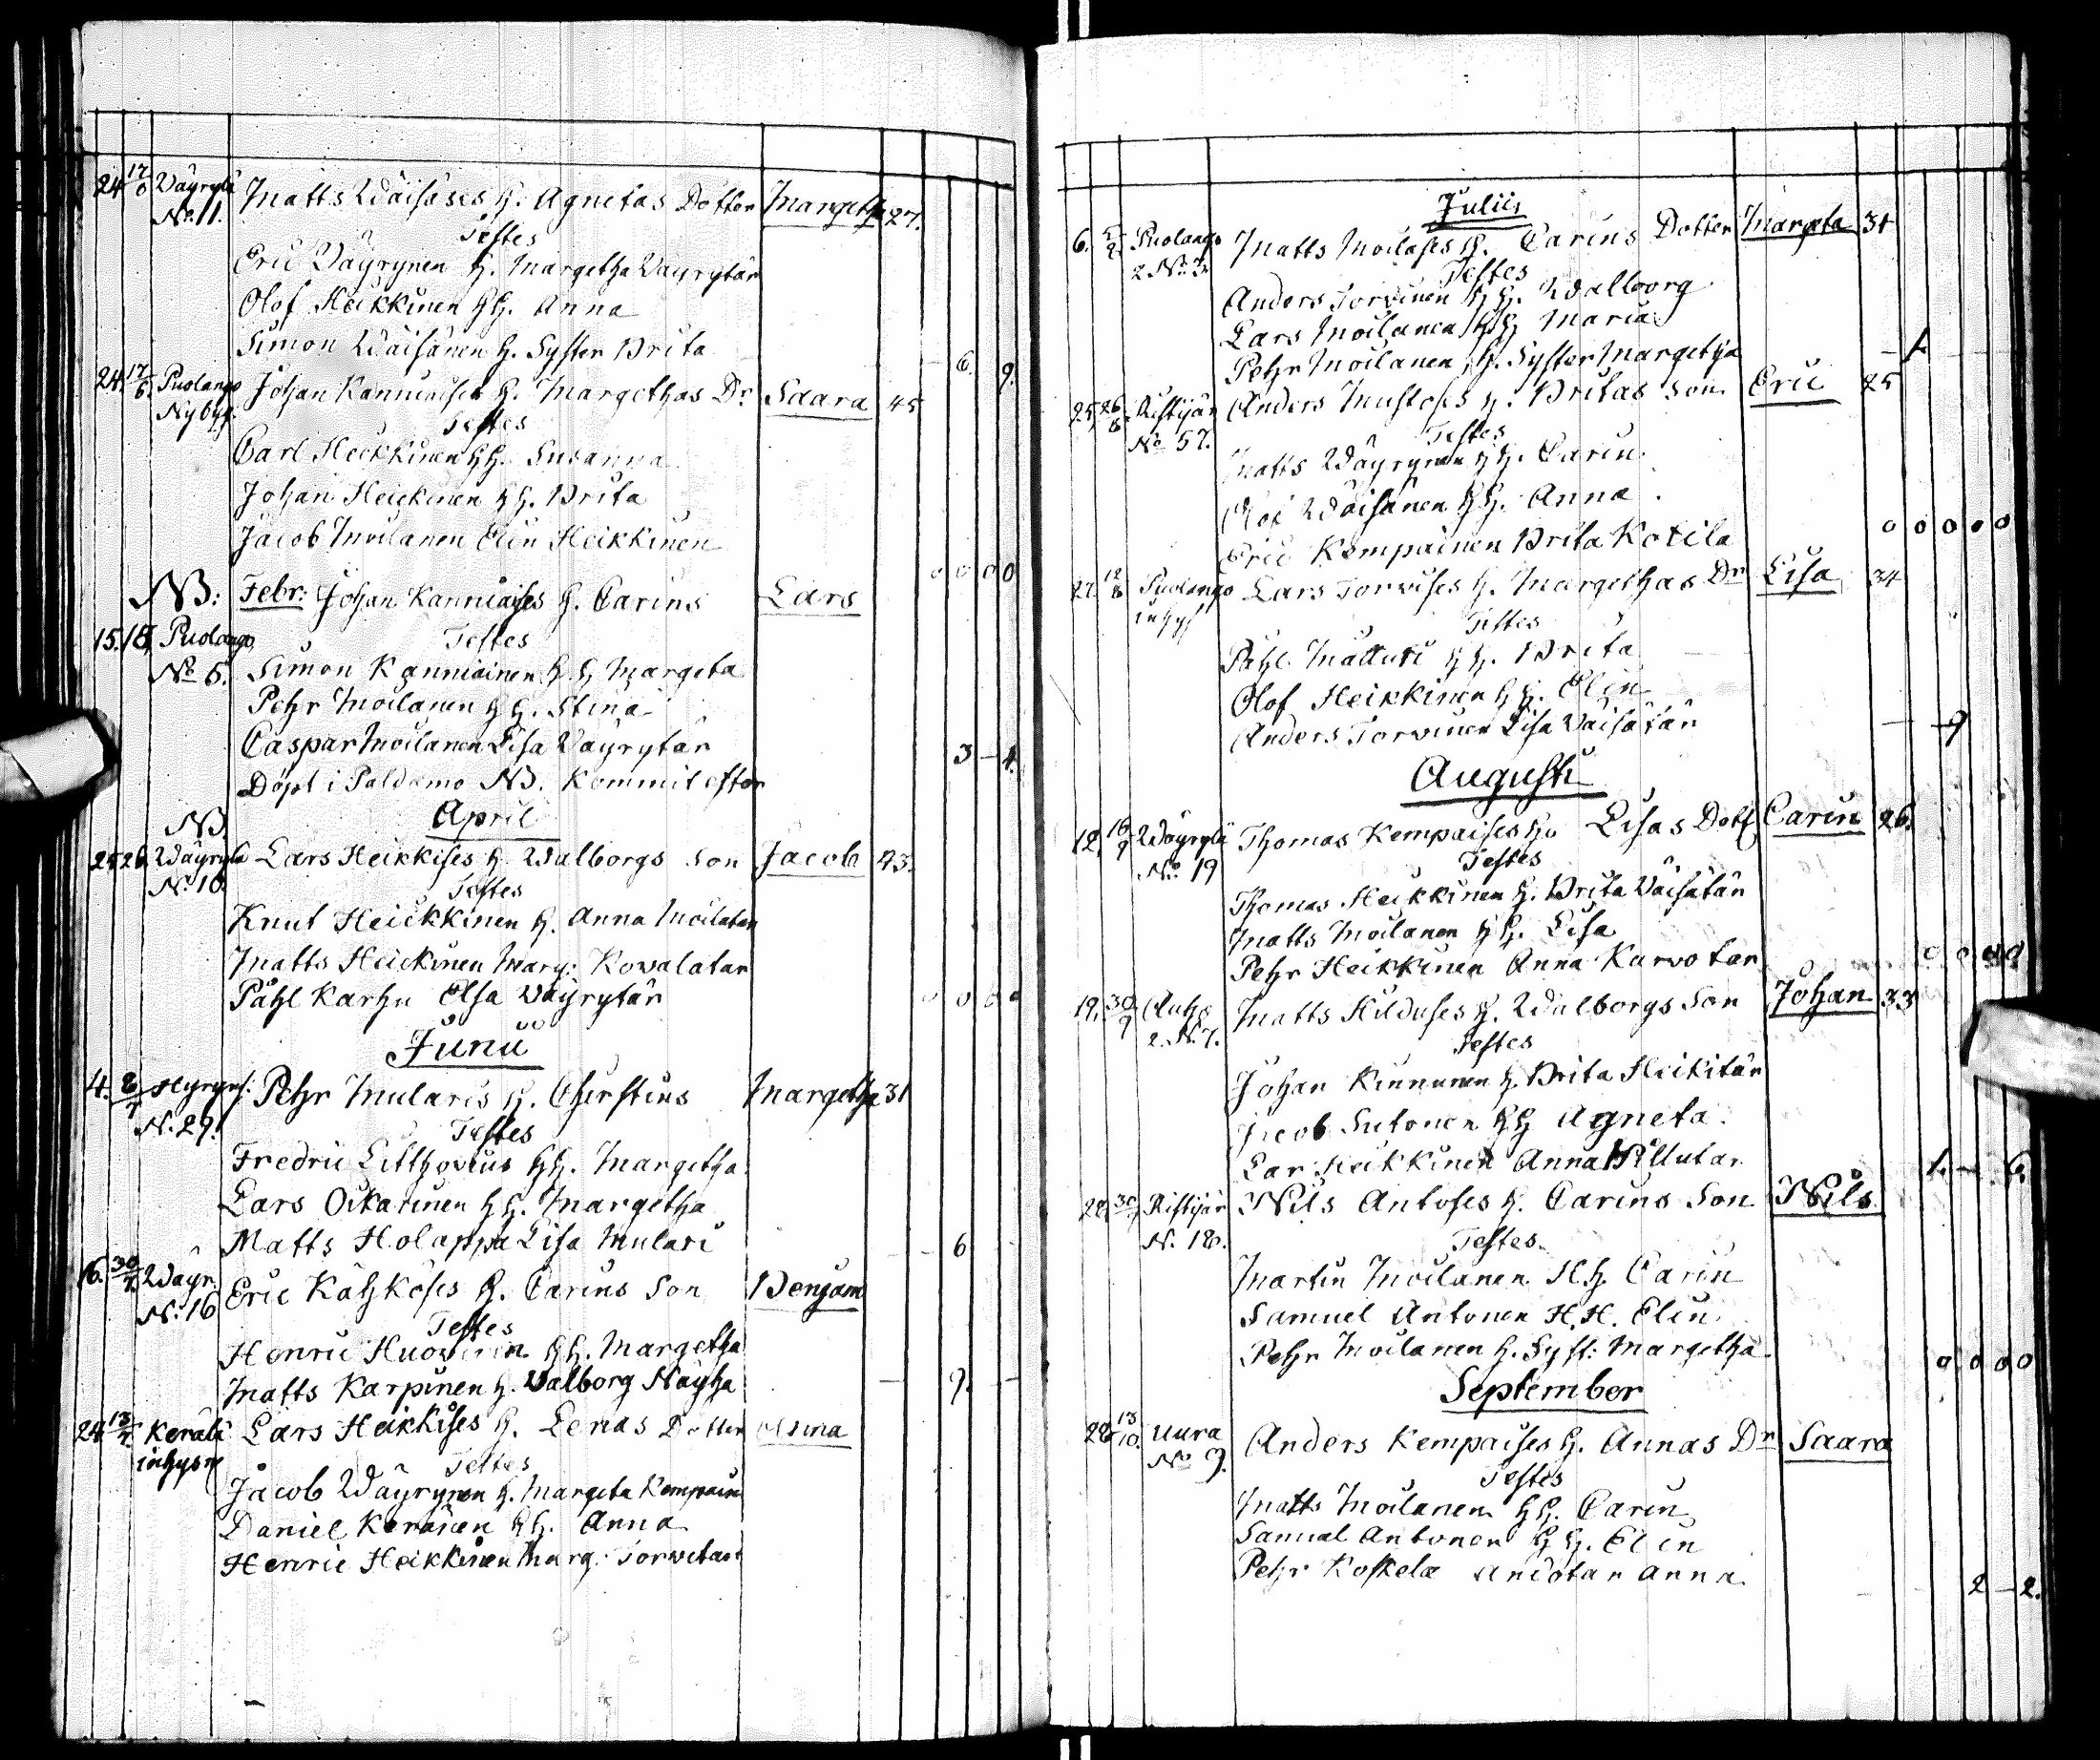 24 17/6 Väyrylä Matts Wäisäses H. Agnetas Dotter Margeth 27.
No. 11. Testes
Eric Väyrynen H. Margetha Väyrytär
Olof Heikkinen H H. Anna
Simon Wäisänen H. Syster Brita 6. 9.
24. 17/6. Puolango Johan Kanniaises H. Margethas Dr. Saara 45
Nybyg. Testes
Carl Heikkinen H H. Susanna
Johan Heickinen H H. Brita
Jacob Moilanen Elin Heikkinen 0 0 0 0
NB: Febr: Johan Kanniaises H. Carins Lars
15. 18, Puolango Testes
No 5. Simon Kanniainen H. H Margeta
Pehr Moilanen H H. Stina
Caspar Moilanen Lisa Väyrytär 3 – 4.
Döpt i Paldamo NB. Kommit efter
April
NB.
25 26 Wäyrylä Lars Heikkises H. Walborgs Son Jacob 43.
N. 10. Testes
Knut Heickkinen H. Anna Moilatar
Matts Heickinen Marg: Kovalatar
Påhl Karhu Elsa Väyrytär 0 0 0 0
Junii
4. 8/7 Hyryns: Pehr Mularis H. Cherstins Margetha 31
N. 29. Testes
Fredric Litthovius H H. Margetha
Lars Oikarinen H H. Margetha
Matts Holappa Lisa Mulari – 6 –
16. 30/7. Wäyr. Eric Kähköses H. Carins Son Benjam
N. 16 Testes
Henric Huovinen H H. Margetha
Matts Karpinen H. Valborg Näyhä – 9. –
24. 13/7. Kerälä Lars Heikkises H. Lenas Dotter Anna
inhysn Testes
Jacob Wäyrynen H. Margeta Kempain
Daniel Keränen H H. Anna
Henric Heikkinen Marg. Torwitar
Julii
6. 2 Puolango Matts Moilases H. Carins Dotter Margeta 31
2 No. 3. Testes
Anders Torvinen H H. Walborg
Lars Moilanen H H Maria
Pehr Moilanen, H. Syster Margetha – 1. – –
25, 26/8. Ristijär Anders Mustoses H. Britas Son Eric 25
No 57. Testes
Matts Wäyrynen H H. Carin
Wäisänen H H. Anna
Eric Kempainen Brita Kotila 0 0 0 0 0
27. 12/8 Puolango Lars Torvises H. Margethas Dr Lisa 34
inhys Testes
Påhl Mättäri H H. Brita
Olof Heikkinen H H. Elin
Anders Torvinen Lisa Väisätär – 9
Augusti
12, 16/9 Wäyrylä Thomas Kempaises H. Lisas Dott Carin 26.
No. 19 Testes
Thomas Heikkinen H. Brita Väisätär
Matts Moilanen H H. Lisa
Pehr Heikkinen Anna Karvotar 0 0 0 0
19, 30/9 Matts Hilduses H. Walborgs Son Johan 33
2. N. 7. Testes
Johan Kinnunen H. Brita Heikitär
Jacob Sutonen H H Agneta.
Lars Heikkinen Anna 1. – 6.
28, 30/9 Ristijär Nils Antoses H. Carins Son Nils
N. 18. Testes
Martin Moilanen H H. Carin
Samuel Antonen H. H. Elin
Pehr Moilanen H. Syst: Margetha 0 0 0 0
September
28 13/10. Uura Anders Kempaises H. Annas Dr Saara
No 9. Testes
Matts Moilanen H H. Carin
Samuel Antonen H H. Elin
Pehr Koskela Anna 2 – 2.